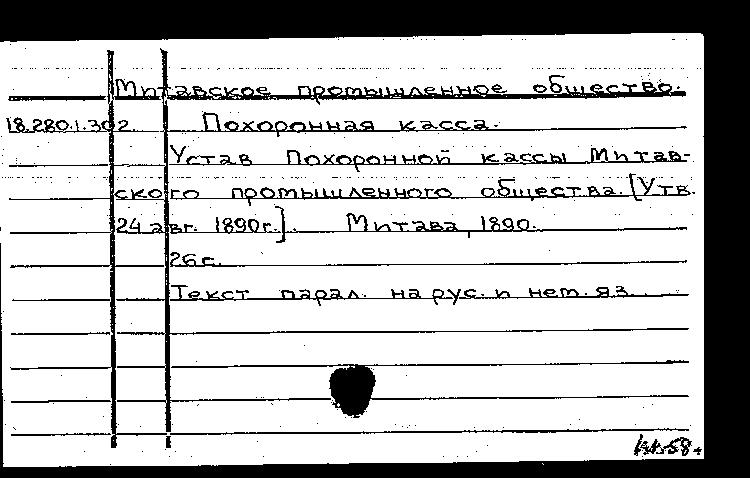 Митавское промышленное общество.
18.280.1.302. Похоронная касса.
Устав Похоронной кассы Митав-
ского промышленного общества. [Утв.
24 авг. 1890г.]. Митава, 1890.
26 с.
Текст парал. на рус. и нем. яз.